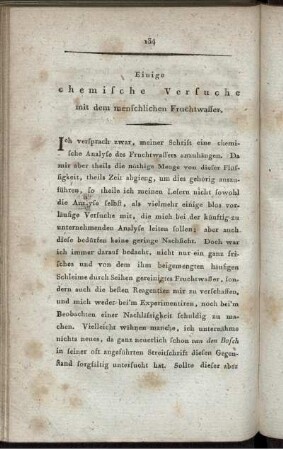 134
Einige
chemische Versuche
mit dem menschlichen Fruchtwasser.
Ich versprach zwar, meiner Schrift eine chemi-
sche Analyse des Fruchtwassers anzuhängen. Da
mir aber theils die nöthige Menge von dieser Flüs-
sigkeit, theils Zeit abgieng, um dies gehörig auszu-
führen, so theile ich meinen Lesern nicht sowohl
die Analyse selbst, als vielmehr einige blos vor-
läufige Versuche mit, die mich bei der künftig zu
unternehmenden Analyse leiten sollen; aber auch
diese bedürfen keine geringe Nachsicht. Doch war
ich immer darauf bedacht, nicht nur ein ganz fri-
sches und von dem ihm beigemengten häufigen
Schleime durch Seihen gereinigtes Fruchtwasser, son-
dern auch die besten Reagentien mir zu verschaffen,
und mich weder bei'm Experimentiren, noch bei'm
Beobachten einer Nachlässigkeit schuldig zu ma-
chen. Vielleicht wähnen manche, ich unternähme
nichts neues, da ganz neuerlich schon van den Bosch
in seiner oft angeführten Streitschrift diesen Gegen-
stand sorgfältig untersucht hat. Sollte dieser aber